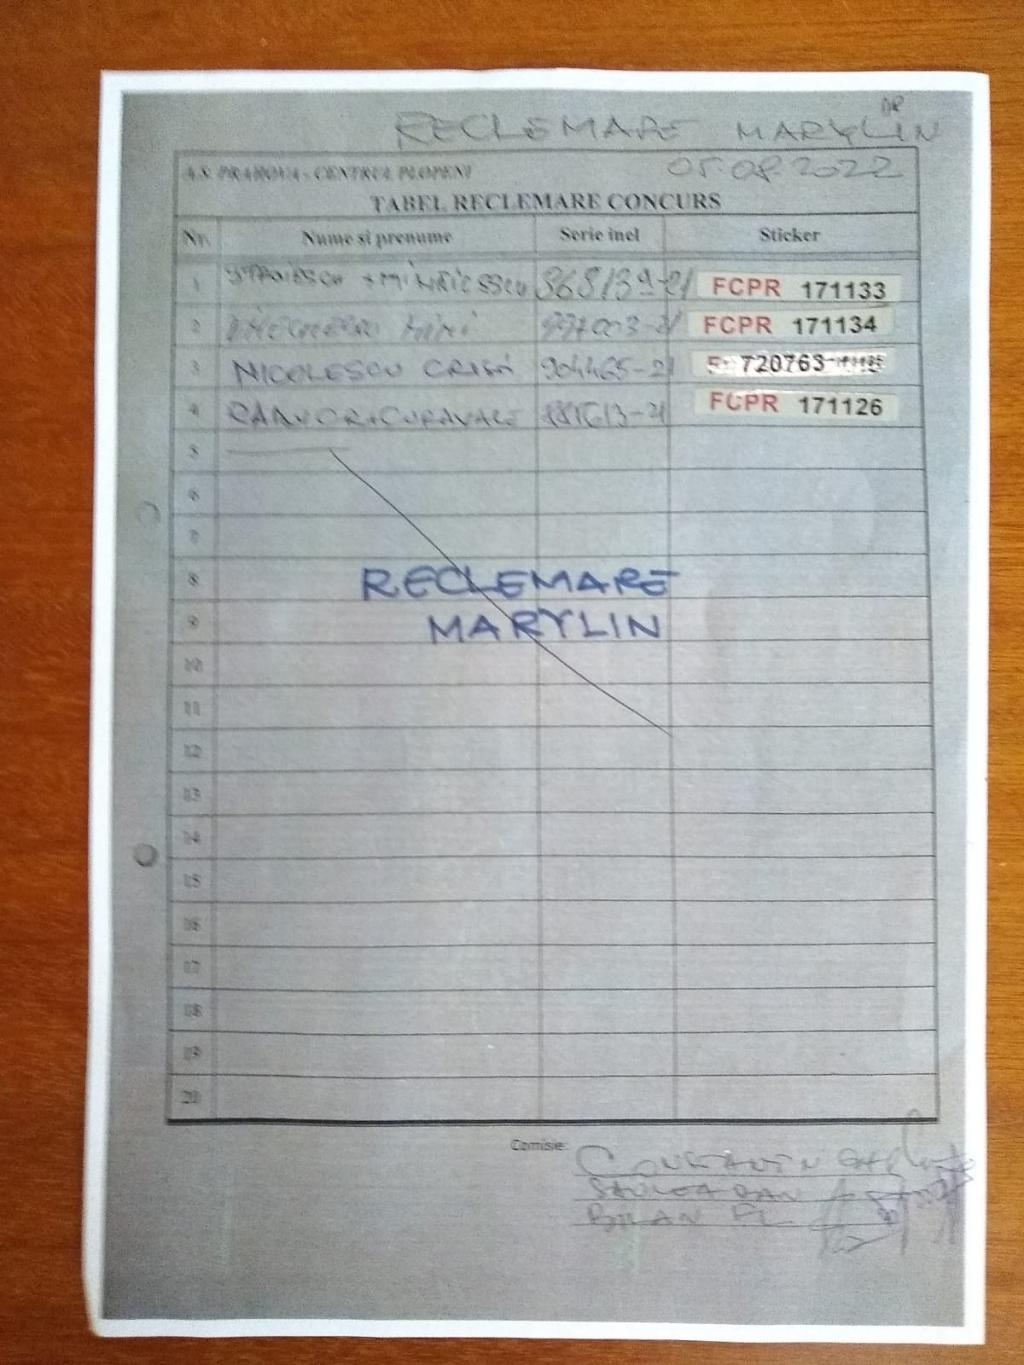 RECLEMARE MARYLIN
05.08.2022
A.S. PRAHOVA - CENTRUL PLOPENI
TABEL RECLEMARE CONCURS
Nr. Nume și prenume Serie inel Sticker
1 368139-21 FCPR 171133
2 997003-21 FCPR 171134
3 NICOLESCU CRISTI 904465-21 720763
4 FCPR 171126
5
6
7
8 RECLEMARE
9 MARYLIN
10
11
12
13
14
15
16
17
18
19
20
Comisie:
CONSTANTIN
DAN